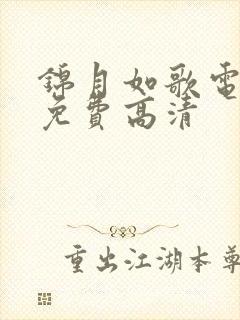 錦月如歌電
免費高清
重出江湖本尊